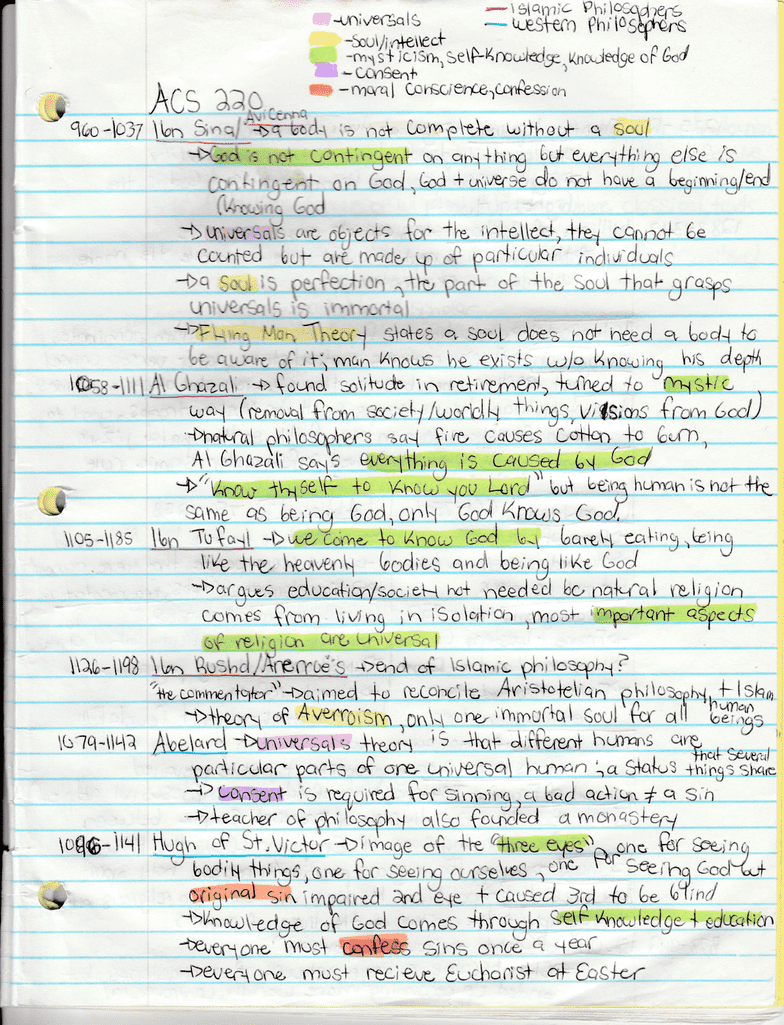 -universals
-Islamic Philosophers
-Western Philosophers
-soul/intellect
-mysticism, self-knowledge, knowledge of God
-consent
-moral conscience, confession
ACS 220
Avicenna
960-1037 Ibn Sina/ → a body is not complete without a soul
→God is not contingent on anything but everything else is
contingent on God, God + universe do not have a beginning/end
(knowing God
→universals are objects for the intellect, they cannot be
counted but are made up of particular individuals
→a soul is perfection, the part of the soul that grasps
universals is immortal
→Flying Man Theory states a soul does not need a body to
be aware of it; man knows he exists w/o knowing his depth
1058-1111 Al Ghazali → found solitude in retirement, turned to mystic
way (removal from society/worldly things, visions from God)
→natural philosophers say fire causes cotton to burn,
Al Ghazali says everything is caused by God
→"Know thyself to know you Lord" but being human is not the
same as being God, only God knows God.
1105-1185 Ibn Tufayl → we come to know God by barely eating, being
like the heavenly bodies and being like God
→argues education/society not needed bc natural religion
comes from living in isolation, most important aspects
of religion are universal
1126-1198 Ibn Rushd/Arerroe's →end of Islamic philosophy?
"the commentator" →aimed to reconcile Aristotelian philosophy + Islam
→theory of Averroism, only one immortal soul for all human beings
1079-1142 Abelard →universals theory is that different humans are
particular parts of one universal human; a status that several things share
→consent is required for sinning, a bad action ≠ a sin
→teacher of philosophy also founded a monastery
1096-1141 Hugh of St. Victor →image of the "three eyes", one for seeing
bodily things, one for seeing ourselves, one for seeing God but
original sin impaired 2nd eye + caused 3rd to be blind
→knowledge of God comes through self knowledge + education
→everyone must confess sins once a year
→everyone must recieve Eucharist at Easter